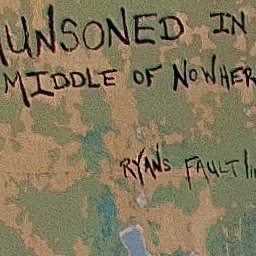 UNSONED IN
MIDDLE OF NOWHER
RYANS FAULT